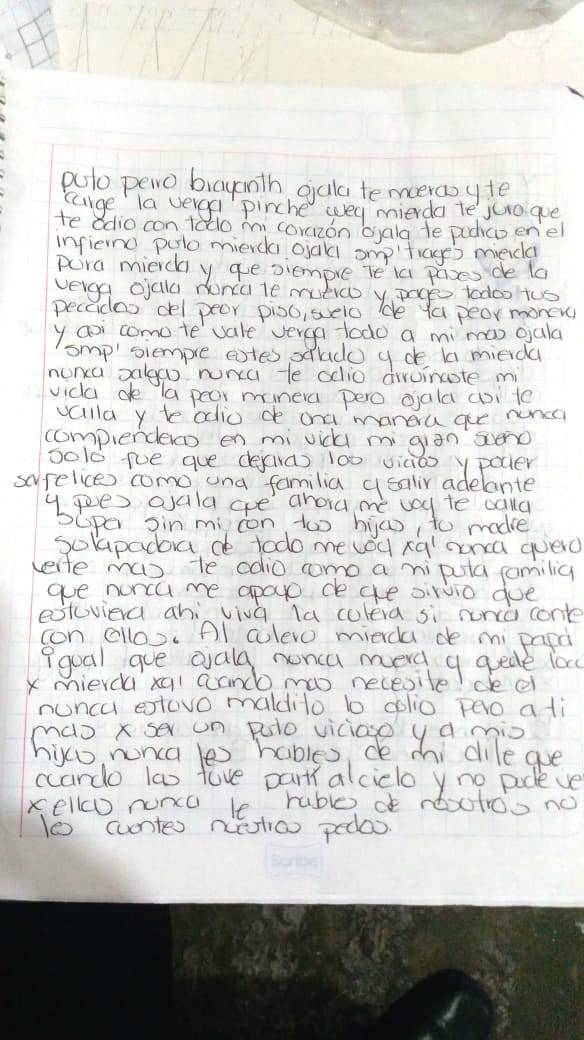 puto perro brayanth ojala te mueras y te
carge la verga pinche wey mierda te juro que
te odio con todo mi corazón ojala te pudras en el
infierno puto mierda ojala smp' trages mierda
pura mierda y que siempre te la pases de la
verga ojala nunca te mueras y pages todos tus
peccidos del peor piso, suelo de la peor monera
y asi como te vale verga todo a mi mas ojala
smp' siempre estes salado y de la mierda
nunca salgas nunca te odio arruinaste mi
vida de la peor manera pero ojala asi te
valla y te odio de una manera que nunca
comprenderas en mi vida mi gran sueño
solo fue que dejaras los vicios y poder
ser felices como una familia y salir adelante
y pues ojala que ahora me voy te valla
super sin mi con tus hijas, tu madre
solapadora de todo me voy xq' nunca quiero
verte mas te odio como a mi puta familia
que nunca me apoyo de que sirvio que
estuviera ahi viva la culera si nunca conte
con ellos. Al culero mierda de mi papá
igual que ojala nunca muera y quede loco
x mierda xq' cuando mas necesite de el
nunca estuvo maldito lo odio pero a ti
mas x ser un puto vicioso y a mis
hijas nunca les hables de mi dile que
cuando las tuve parti al cielo y no pude ver
x ellas nunca le hables de nosotros no
les cuentes nuestros pedos.
Scribe